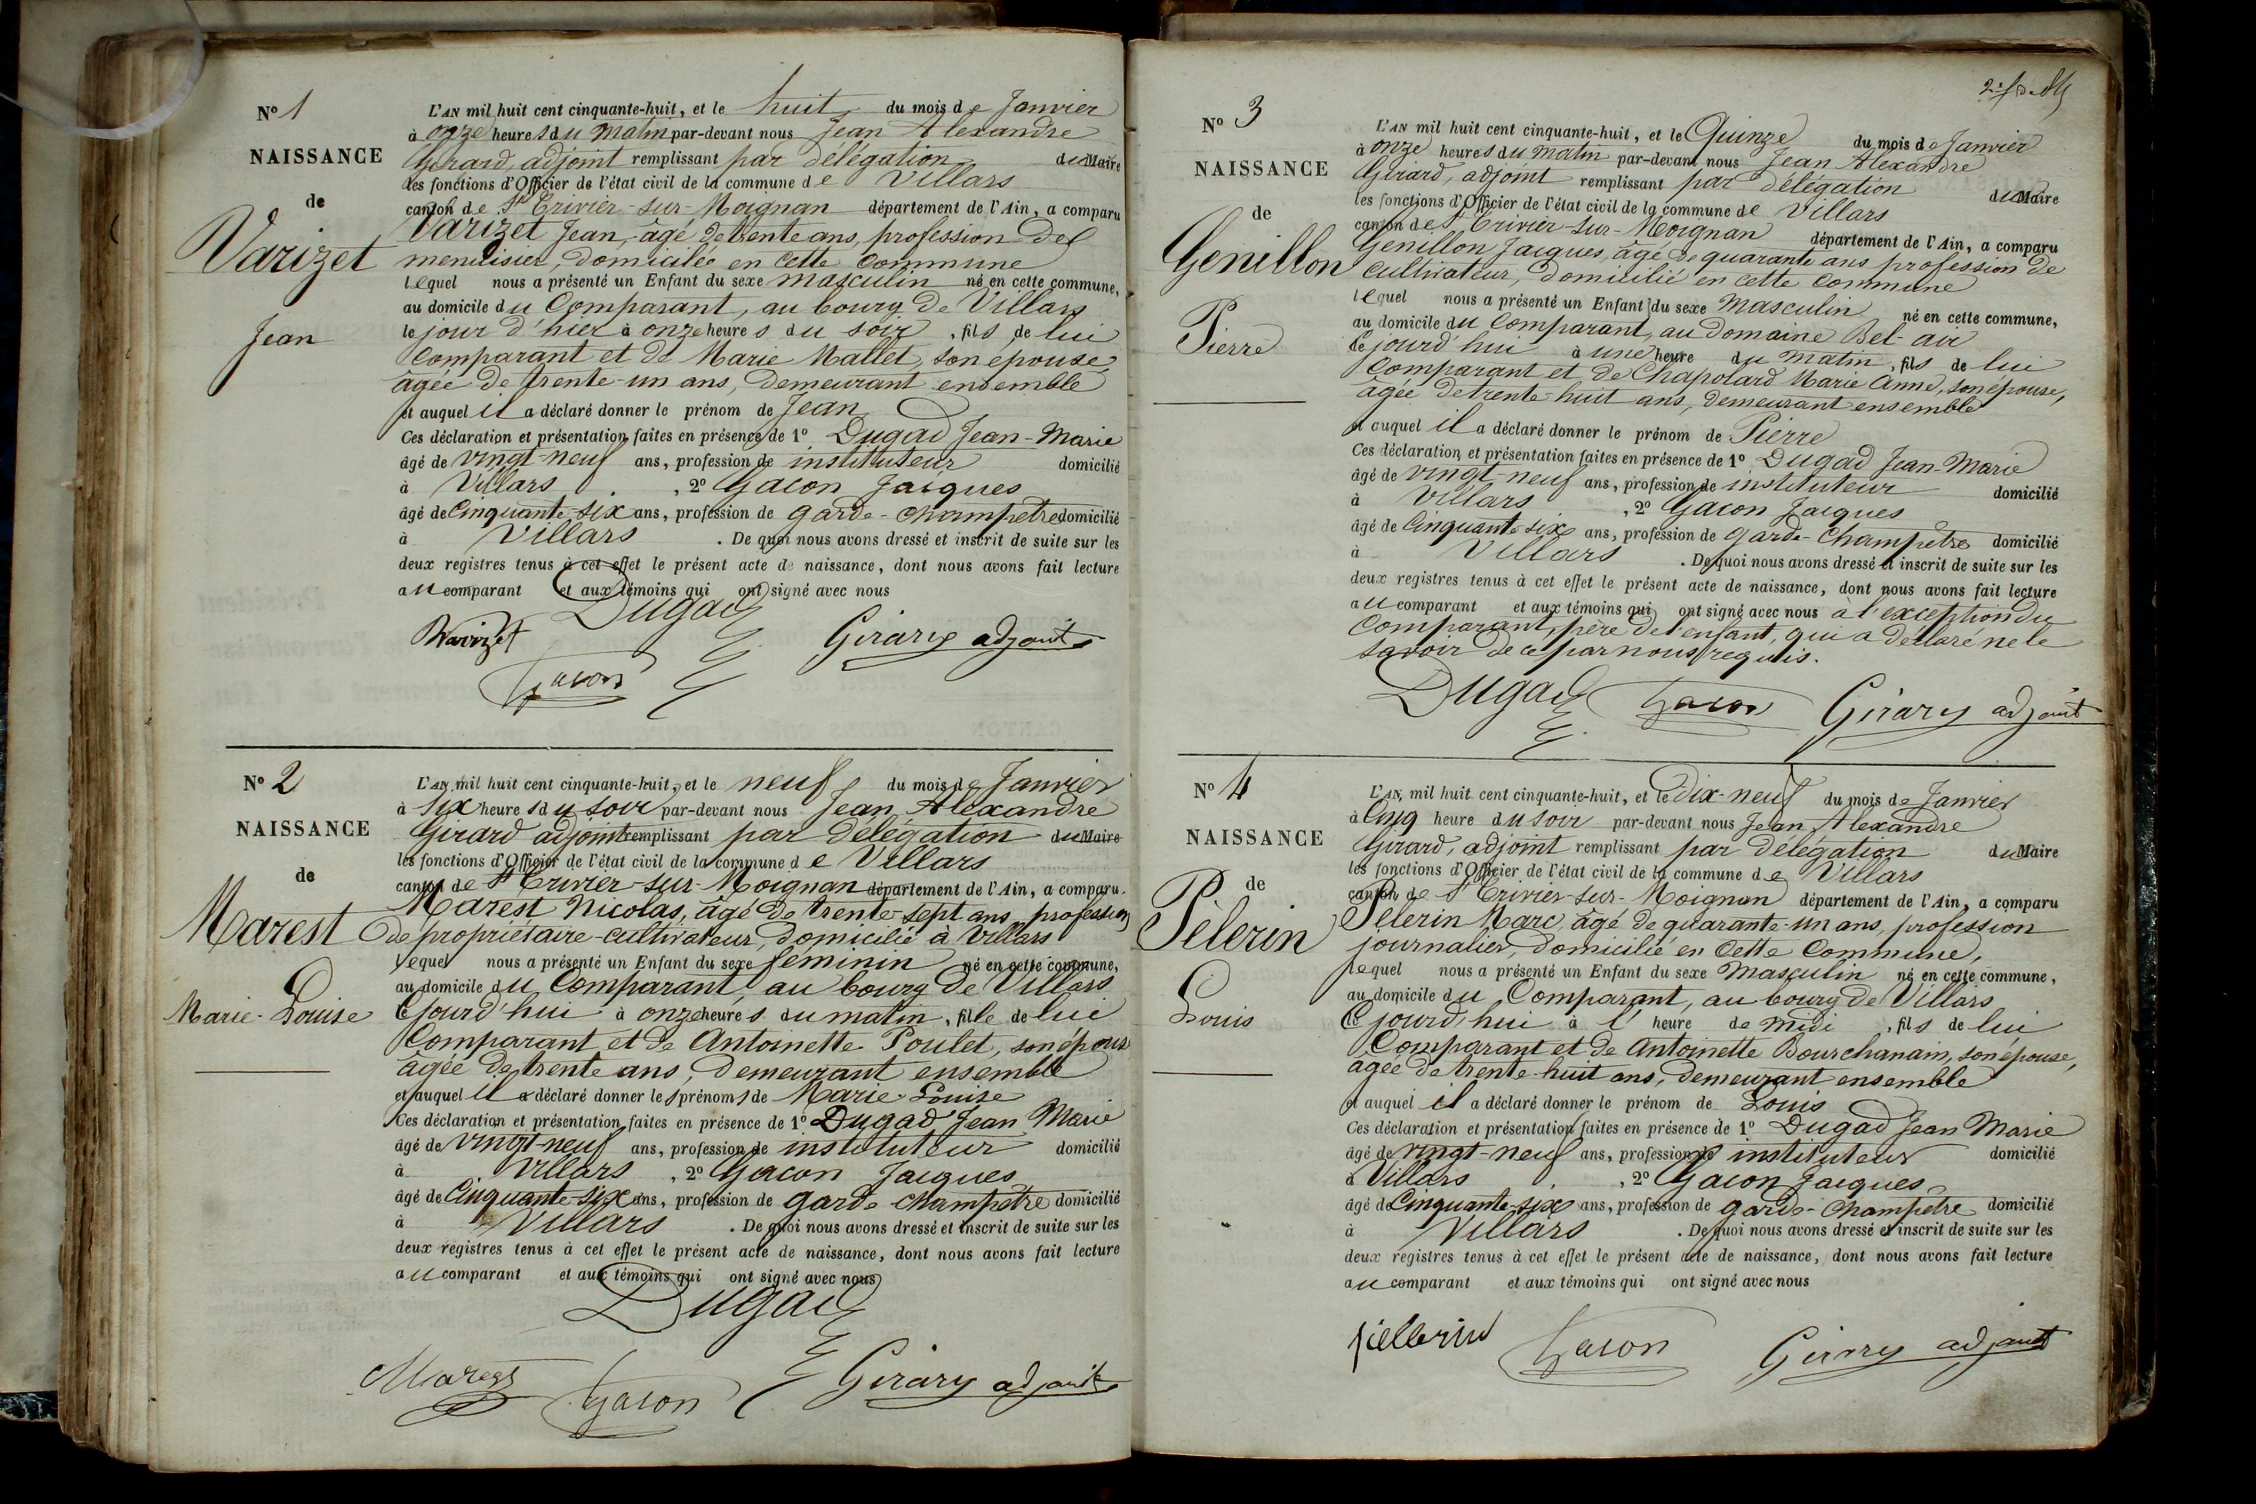 N° 1
NAISSANCE
de
Varizet
Jean
L'AN mil huit cent cinquante-huit, et le huit du mois de Janvier
à onze heures du matin par-devant nous Jean Alexandre
Girard, adjoint remplissant par délégation du Maire
les fonctions d'Officier de l'état civil de la commune de Villars
canton de St Trivier-sur-Moignan département de l'Ain, a comparu
Varizet Jean, âgé de trente ans, profession de
menuisier, domicilié en cette commune
lequel nous a présenté un Enfant du sexe masculin né en cette commune,
au domicile du Comparant, au bourg de Villars
le jour d'hier à onze heures du soir, fils de lui
Comparant et de Marie Mallet, son épouse,
âgée de trente-un ans, demeurant ensemble
et auquel il a déclaré donner le prénom de Jean
Ces déclaration et présentation faites en présence de 1° Dugad Jean-Marie
âgé de vingt-neuf ans, profession de instituteur domicilié
à Villars, 2° Gacon Jacques
âgé de Cinquante-six ans, profession de garde-champêtre domicilié
à Villars. De quoi nous avons dressé et inscrit de suite sur les
deux registres tenus à cet effet le présent acte de naissance, dont nous avons fait lecture
au comparant et aux témoins qui ont signé avec nous
Dugad
Varizet Girard adjoint
Gacon
N° 2
NAISSANCE
de
Marest
Marie-Louise
L'AN mil huit cent cinquante-huit, et le neuf du mois de Janvier
à Six heures du soir par-devant nous Jean Alexandre
Girard adjoint remplissant par délégation du Maire
les fonctions d'Officier de l'état civil de la commune de Villars
canton de St Trivier-sur-Moignan département de l'Ain, a comparu.
Marest Nicolas, âgé de trente-sept ans profession
de propriétaire-cultivateur, domicilié à Villars
lequel nous a présenté un Enfant du sexe féminin né en cette commune,
au domicile du Comparant, au bourg de Villars
Cejourd'hui à onze heures du matin, fille de lui
Comparant et de Antoinette Poulet, son épouse
âgée de trente ans, demeurant ensemble
et auquel il a déclaré donner les prénoms de Marie-Louise
Ces déclaration et présentation faites en présence de 1° Dugad Jean Marie
âgé de vingt-neuf ans, profession de instituteur domicilié
à Villars, 2° Gacon Jacques
âgé de Cinquante-six ans, profession de garde-champêtre domicilié
à Villars. De quoi nous avons dressé et inscrit de suite sur les
deux registres tenus à cet effet le présent acte de naissance, dont nous avons fait lecture
au comparant et aux témoins qui ont signé avec nous
Dugad
Marest Gacon Girard adjoint
N° 3
NAISSANCE
de
Genillon
Pierre
L'AN mil huit cent cinquante-huit, et le Quinze du mois de Janvier
à onze heures du matin par-devant nous Jean Alexandre
Girard, adjoint remplissant par délégation du Maire
les fonctions d'Officier de l'état civil de la commune de Villars
canton de St Trivier-sur-Moignan département de l'Ain, a comparu
Genillon Jacques, âgé de quarante ans profession de
cultivateur, domicilié en cette commune
lequel nous a présenté un Enfant du sexe Masculin né en cette commune,
au domicile du Comparant, au Domaine Bel-air
Cejourd'hui à une heure du matin, fils de lui
Comparant et de Chapolard Marie Anne, son épouse,
âgée de trente-huit ans, demeurant ensemble
et auquel il a déclaré donner le prénom de Pierre
Ces déclaration et présentation faites en présence de 1° Dugad Jean-Marie
âgé de vingt-neuf ans, profession de instituteur domicilié
à Villars, 2° Gacon Jacques
âgé de Cinquante-six ans, profession de garde-Champêtre domicilié
à Villars. De quoi nous avons dressé et inscrit de suite sur les
deux registres tenus à cet effet le présent acte de naissance, dont nous avons fait lecture
au comparant et aux témoins qui ont signé avec nous à l'exception du
Comparant, père de l'enfant, qui a déclaré ne le
savoir de ce par nous requis.
Dugad Gacon Girard adjoint
N° 4
NAISSANCE
de
Pèlerin
Louis
L'AN mil huit cent cinquante-huit, et le Dix-neuf du mois de Janvier
à Cinq heure du soir par-devant nous Jean Alexandre
Girard, adjoint remplissant par délégation du Maire
les fonctions d'Officier de l'état civil de la commune de Villars
canton de St Trivier-sur-Moignan département de l'Ain, a comparu
Pèlerin Marc, âgé de quarante-un ans, profession
journalier, domicilié en Cette Commune,
lequel nous a présenté un Enfant du sexe Masculin né en cette commune,
au domicile du Comparant, au bourg de Villars
Cejourd'hui à l' heure de midi, fils de lui
Comparant et de Antoinette Bourchanain, son épouse,
âgée de trente-huit ans, demeurant ensemble
et auquel il a déclaré donner le prénom de Louis
Ces déclaration et présentation faites en présence de 1° Dugad Jean Marie
âgé de vingt-neuf ans, profession de instituteur domicilié
à Villars, 2° Gacon Jacques
âgé de Cinquante-six ans, profession de garde-Champêtre domicilié
à Villars. De quoi nous avons dressé et inscrit de suite sur les
deux registres tenus à cet effet le présent acte de naissance, dont nous avons fait lecture
au comparant et aux témoins qui ont signé avec nous
pellerin Gacon Girard adjoint